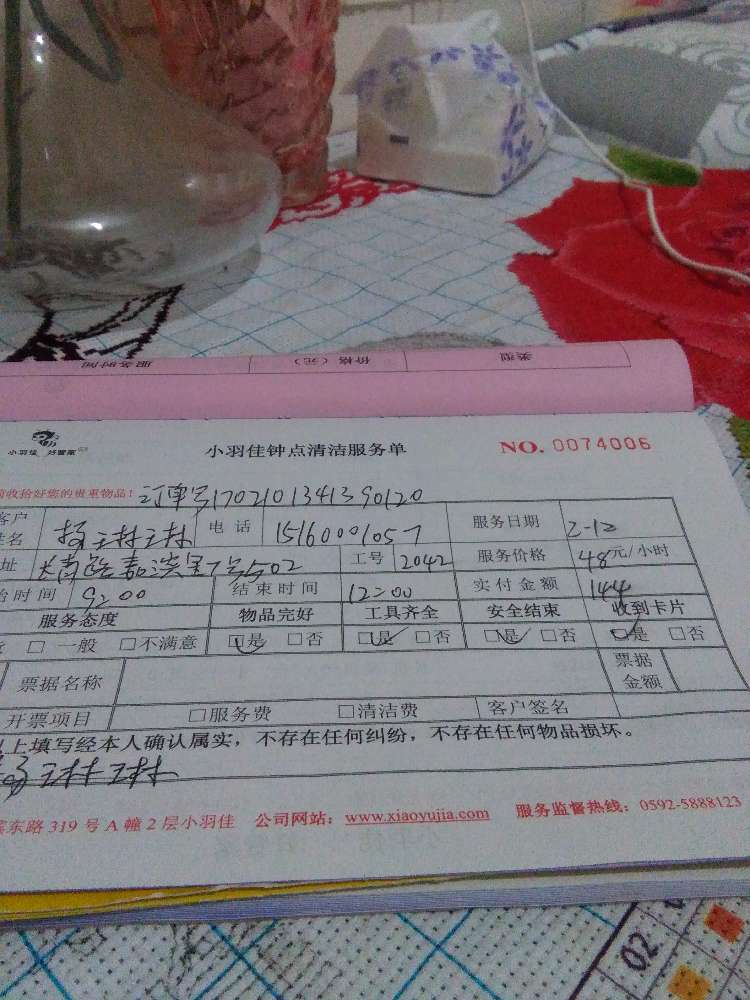 类型 价格（元） 服务时间
小羽佳 好管家
小羽佳钟点清洁服务单 NO. 0074006
收拾好您的贵重物品！ 订单号1702101341390120
客户
姓名 杨琳琳 电话 15160001057 服务日期 2-12
址 7号502 工号 2042 服务价格 48元/小时
时间 9:00 结束时间 12:00 实付金额 144
服务态度 物品完好 工具齐全 安全结束 收到卡片
□一般 □不满意 □是 □否 □是 □否 □是 □否 □是 □否
票据名称 票据
金额
开票项目 □服务费 □清洁费 客户签名
上填写经本人确认属实，不存在任何纠纷，不存在任何物品损坏。
杨琳琳
东路319号A幢2层小羽佳 公司网站：www.xiaoyujia.com 服务监督热线：0592-5888123
02